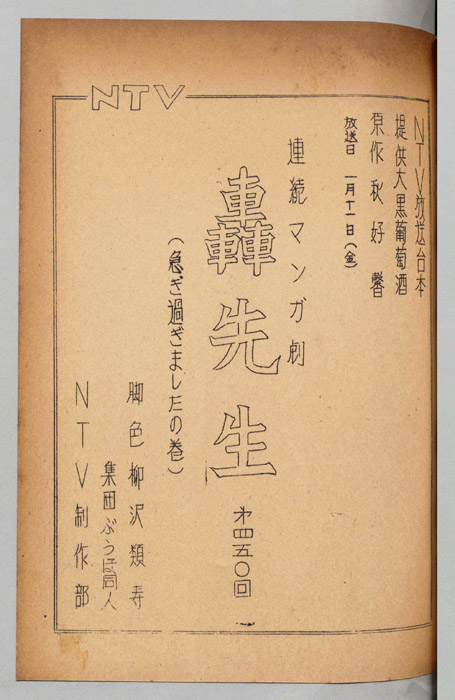 NTV
NTV放送台本
提供大黒葡萄酒
原作秋好馨
放送日 一月十一日(金)
連続マンガ劇
轟先生
才四五〇回
(急ぎ過ぎましたの巻)
脚色 柳沢類寿
集団ぶうほ同人
NTV制作部